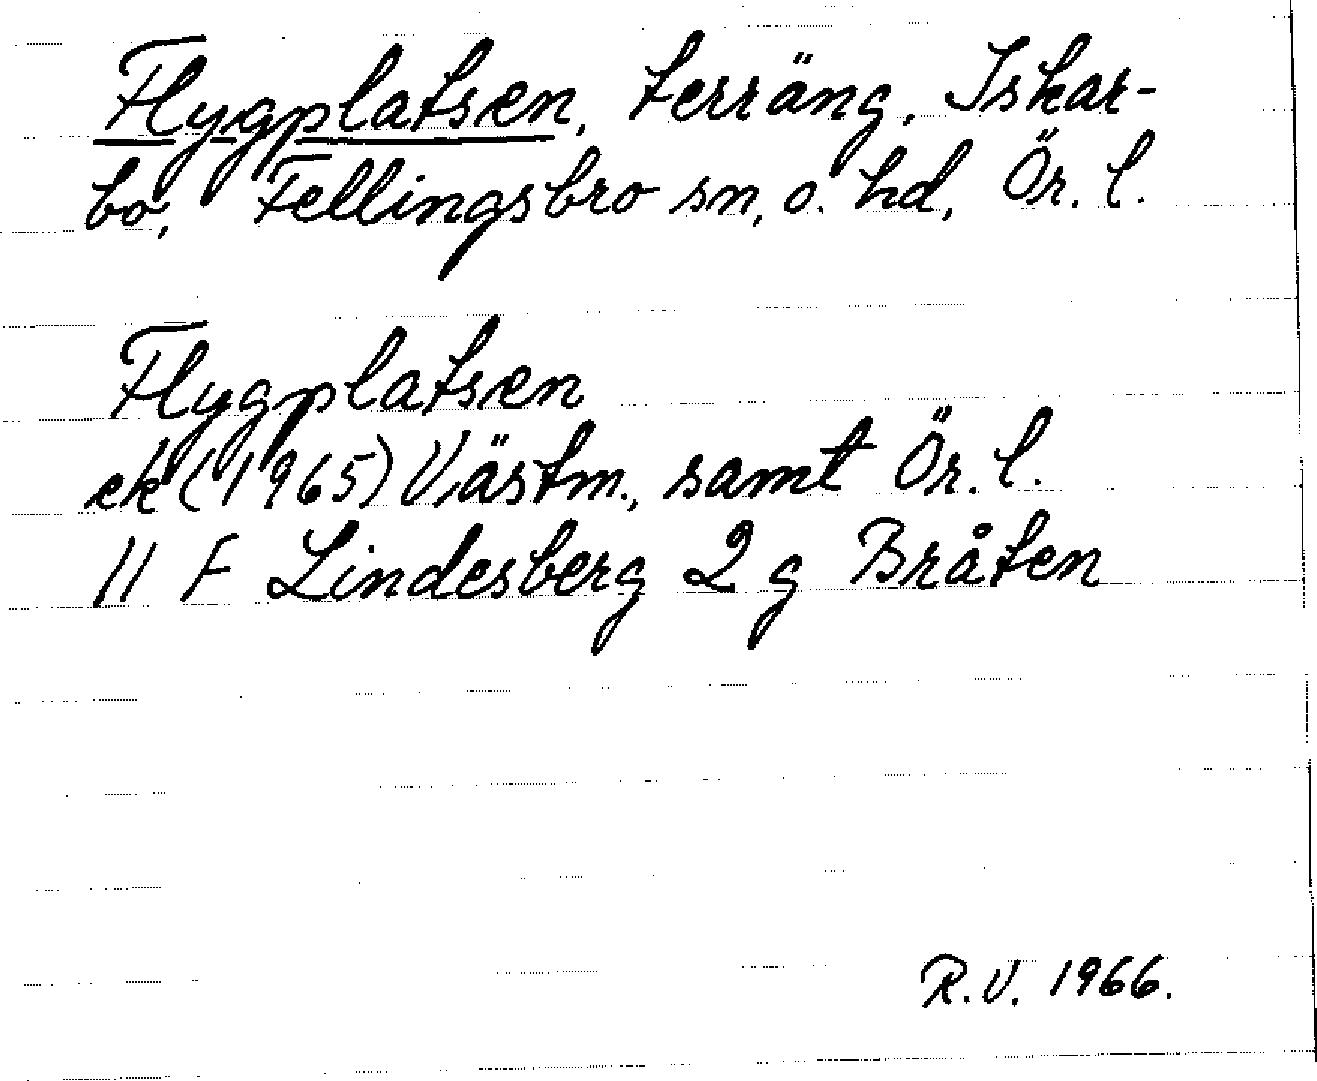 Flygplatsen, terräng, Iskar-
bo, Fellingsbro sn, o. hd, Ör. l.
Flygplatsen
ek (1965) Västm., samt Ör. l.
11 F Lindesberg 2 g Bråten
R.V. 1966.